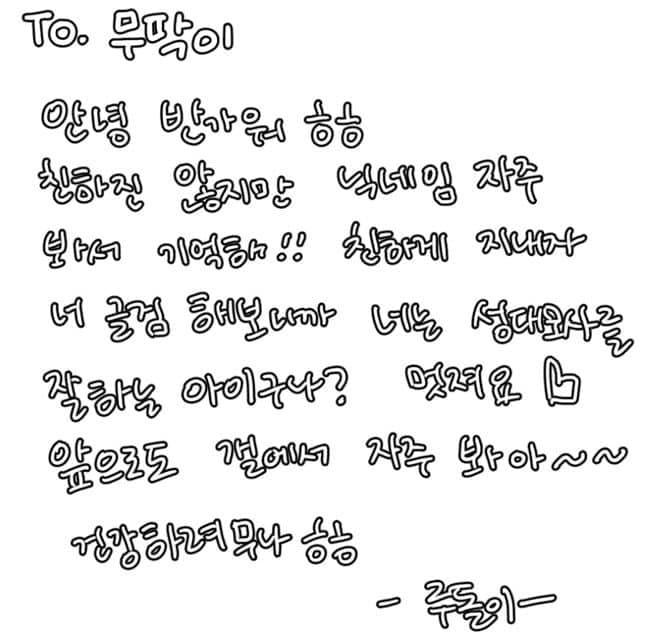 To. 무딱이
안녕 반가워 ㅎㅎ
친하진 않지만 닉네임 자주
봐서 기억해!! 친하게 지내자
너 글검 해보니까 너는 성대모사를
잘하는 아이구나? 멋져요
앞으로도 갤에서 자주 봐아~~
건강하려무나 ㅎㅎ
- 주돌이-